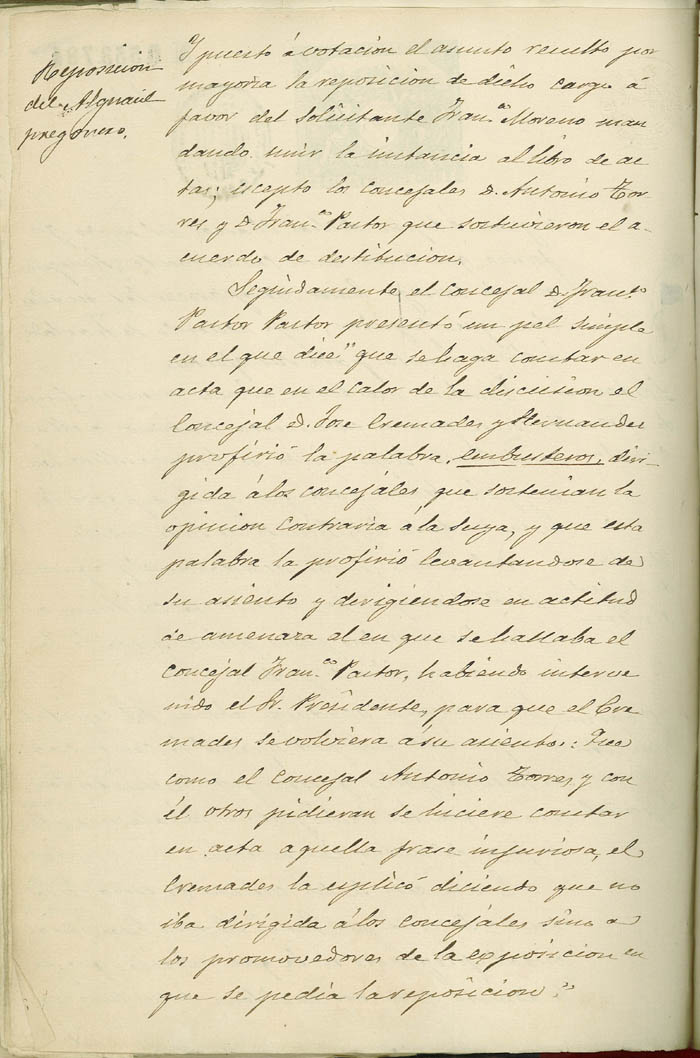 Reposicion
del Alguacil
pregonero.
Y puesto á votacion el asunto resultó por
mayoria la reposicion de dicho cargo á
favor del solicitante Franco. Moreno man
dando unir la instancia al libro de ac
tas; escepto los concejales D. Antonio Tor-
res y D. Franco. Pastor que sostuvieron el a-
cuerdo de destitucion.
Seguidamente el concejal D. Franco.
Pastor Pastor presentó un pel simple
en el que dice "que se haga constar en
acta que en el calor de la discusion el
Concejal D. Jose Cremades y Hernandez
profirió la palabra, embusteros, diri-
gida á los concejáles que sostenian la
opinion contraria á la suya, y que esta
palabra la profirió levantandose de
su asiento y dirigiendose en actitud
de amenaza el en que se hallaba el
concejal Franco. Pastor, habiendo interve
nido el Sr. Presidente, para que el Cre
mades se volviera á su asiento: Que
como el concejal Antonio Torres y con
él otros pidieran se hiciere constar
en acta aquella frase injuriosa, el
Cremades la esplicó diciendo que no
iba dirigida á los concejáles sino a
los promovedores de la exposicion en
que se pedia la reposicion."